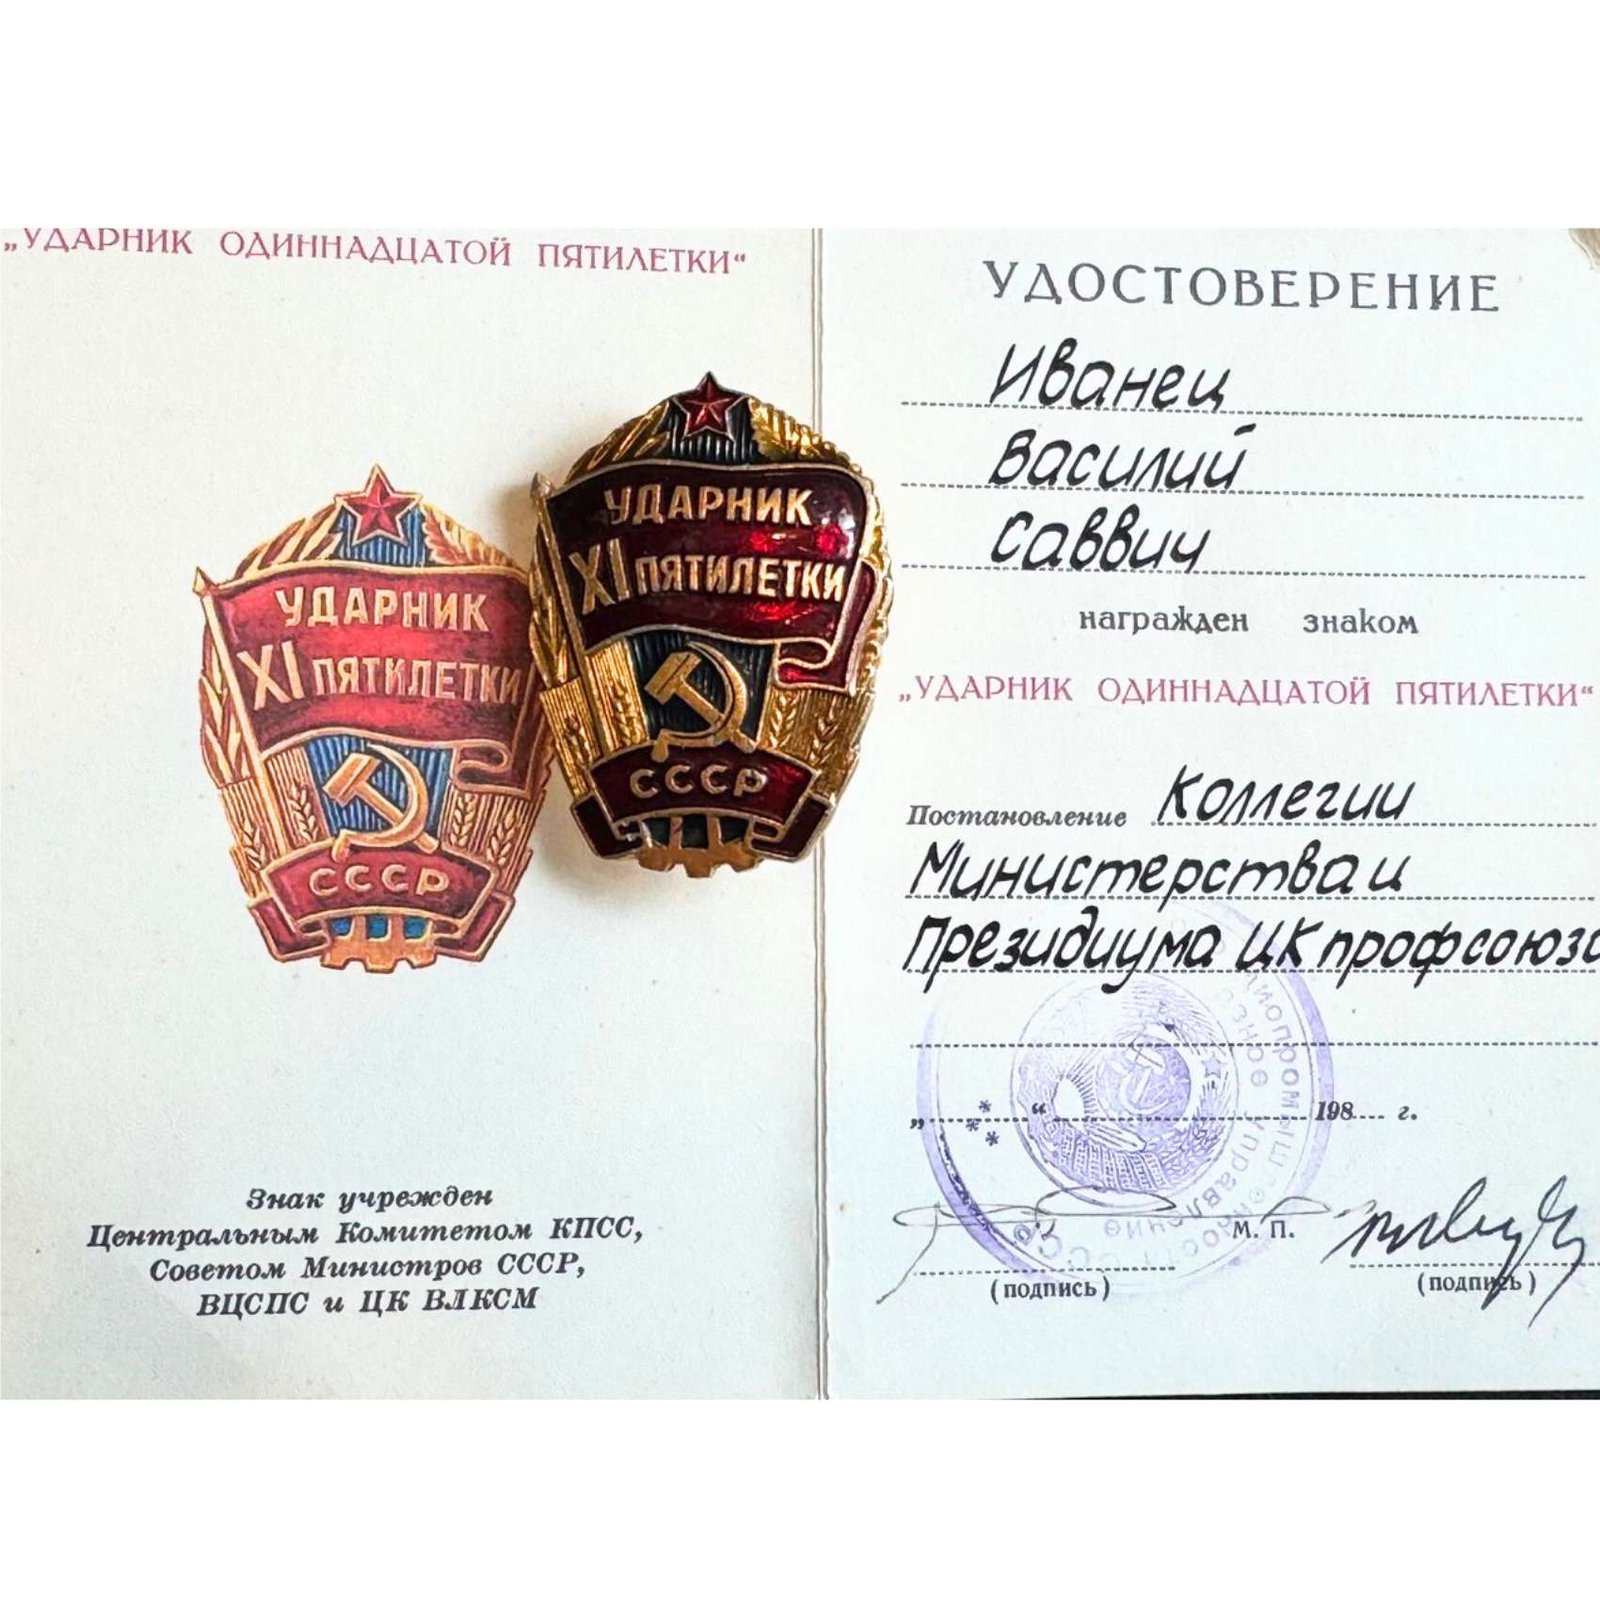 „УДАРНИК ОДИННАДЦАТОЙ ПЯТИЛЕТКИ“
УДАРНИК
XI ПЯТИЛЕТКИ
СССР
УДАРНИК
XI ПЯТИЛЕТКИ
СССР
Знак учрежден
Центральным Комитетом КПСС,
Советом Министров СССР,
ВЦСПС и ЦК ВЛКСМ
УДОСТОВЕРЕНИЕ
Иванец
Василий
Саввич
награжден знаком
„УДАРНИК ОДИННАДЦАТОЙ ПЯТИЛЕТКИ“
Постановление Коллегии
Министерства и
Президиума ЦК профсоюза
„ “ 198 г.
М. П.
(подпись) (подпись)